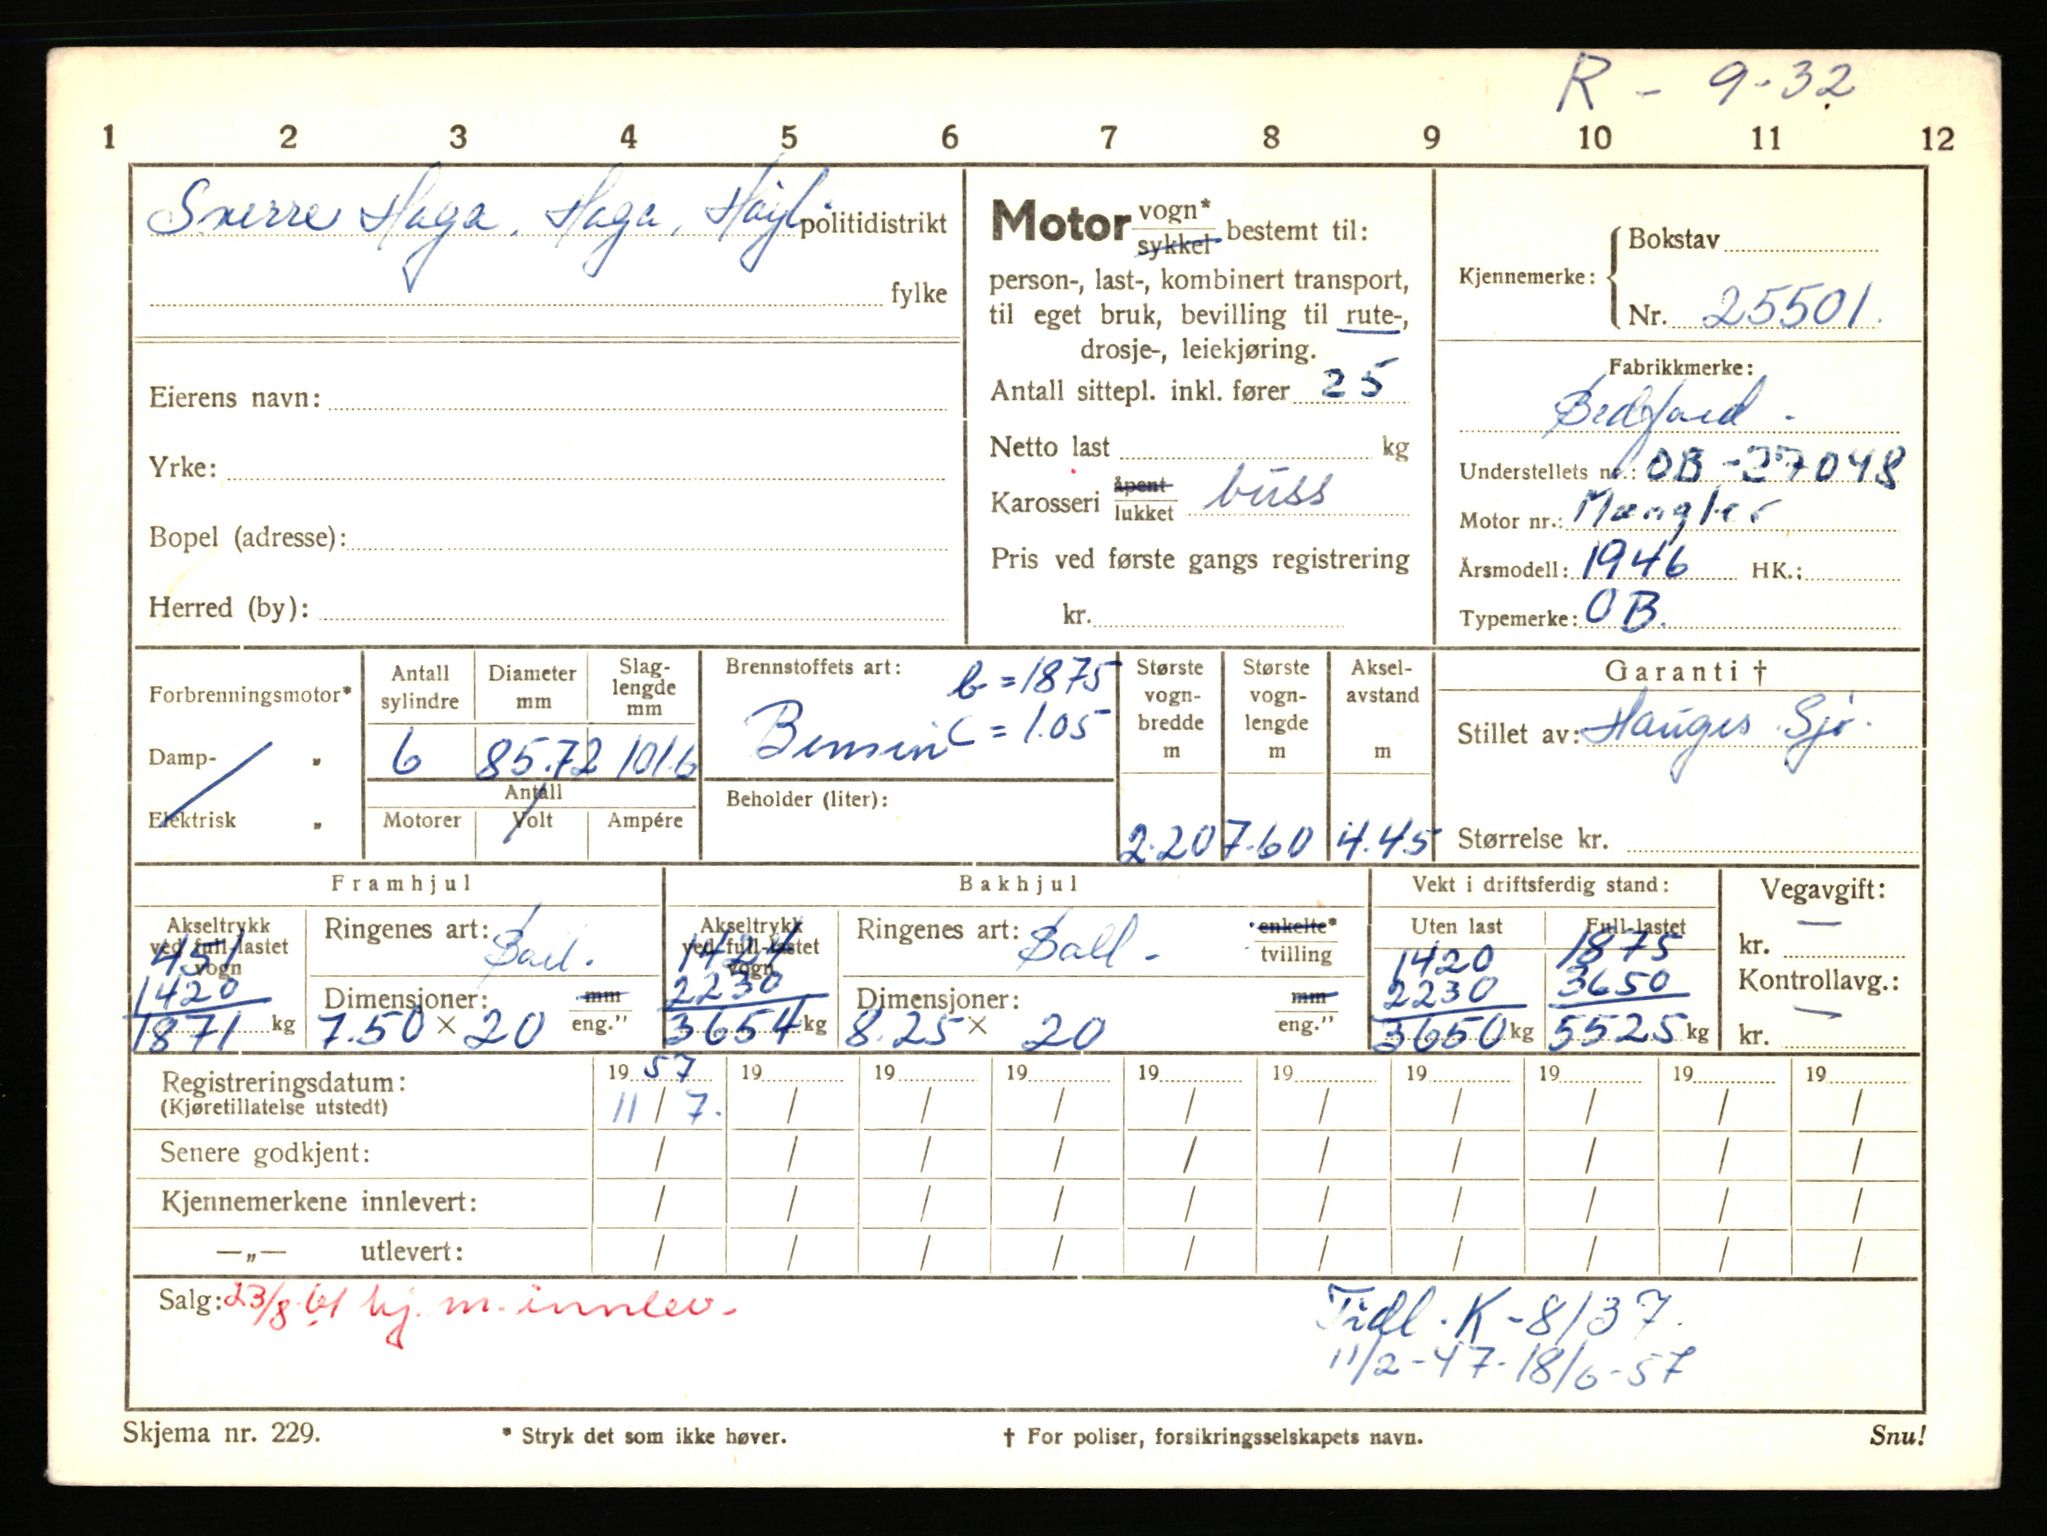 R - 9-32
1 2 3 4 5 6 7 8 9 10 11 12
Sverre Haga. Haga, Høyl. politidistrikt
fylke
Eierens navn:
Yrke:
Bopel (adresse):
Herred (by):
Motor vogn* sykkel bestemt til:
person-, last-, kombinert transport,
til eget bruk, bevilling til rute-,
drosje-, leiekjøring.
Antall sittepl. inkl. fører 25
Netto last kg
Karosseri åpent lukket buss
Pris ved første gangs registrering
kr.
Kjennemerke: Bokstav
Nr. 25501.
Fabrikkmerke:
Bedford -
Understellets nr.: OB-27048
Motor nr.: Mangler
Årsmodell: 1946 HK.:
Typemerke: OB.
Forbrenningsmotor*
Damp- „
Elektrisk „
Antall sylindre
Diameter mm
Slag-
lengde
mm
6 85.72 101.6
Antall
Motorer Volt Ampére
Brennstoffets art: b = 1875
Bensin C = 1.05
Beholder (liter):
Største
vogn-
bredde
m
2.20
Største
vogn-
lengde
m
7.60
Aksel-
avstand
m
4.45
Garanti †
Stillet av: Hauges. Sjø.
Størrelse kr.
Framhjul
Akseltrykk
ved full-lastet
vogn
451
1420
1871 kg
Ringenes art: Ball.
Dimensjoner: mm
7.50 × 20 eng."
Bakhjul
Akseltrykk
ved full-lastet
vogn
1424
2230
3654 kg
Ringenes art: Ball - enkelte*
tvilling
Dimensjoner: mm
8.25 × 20 eng."
Vekt i driftsferdig stand:
Uten last
1420
2230
3650 kg
Full-lastet
1875
3650
5525 kg
Vegavgift:
kr. —
Kontrollavg.:
kr. —
Registreringsdatum: 19 57 19 19 19 19 19 19 19 19 19
(Kjøretillatelse utstedt) 11 / 7. / / / / / / / / /
Senere godkjent: / / / / / / / / / /
Kjennemerkene innlevert: / / / / / / / / / /
—„— utlevert: / / / / / / / / / /
Salg: 23/8-61 kj. m. innlev.
Tidl. K-8137.
11/2-47-18/6-57
Skjema nr. 229.
* Stryk det som ikke høver.
† For poliser, forsikringsselskapets navn.
Snu!